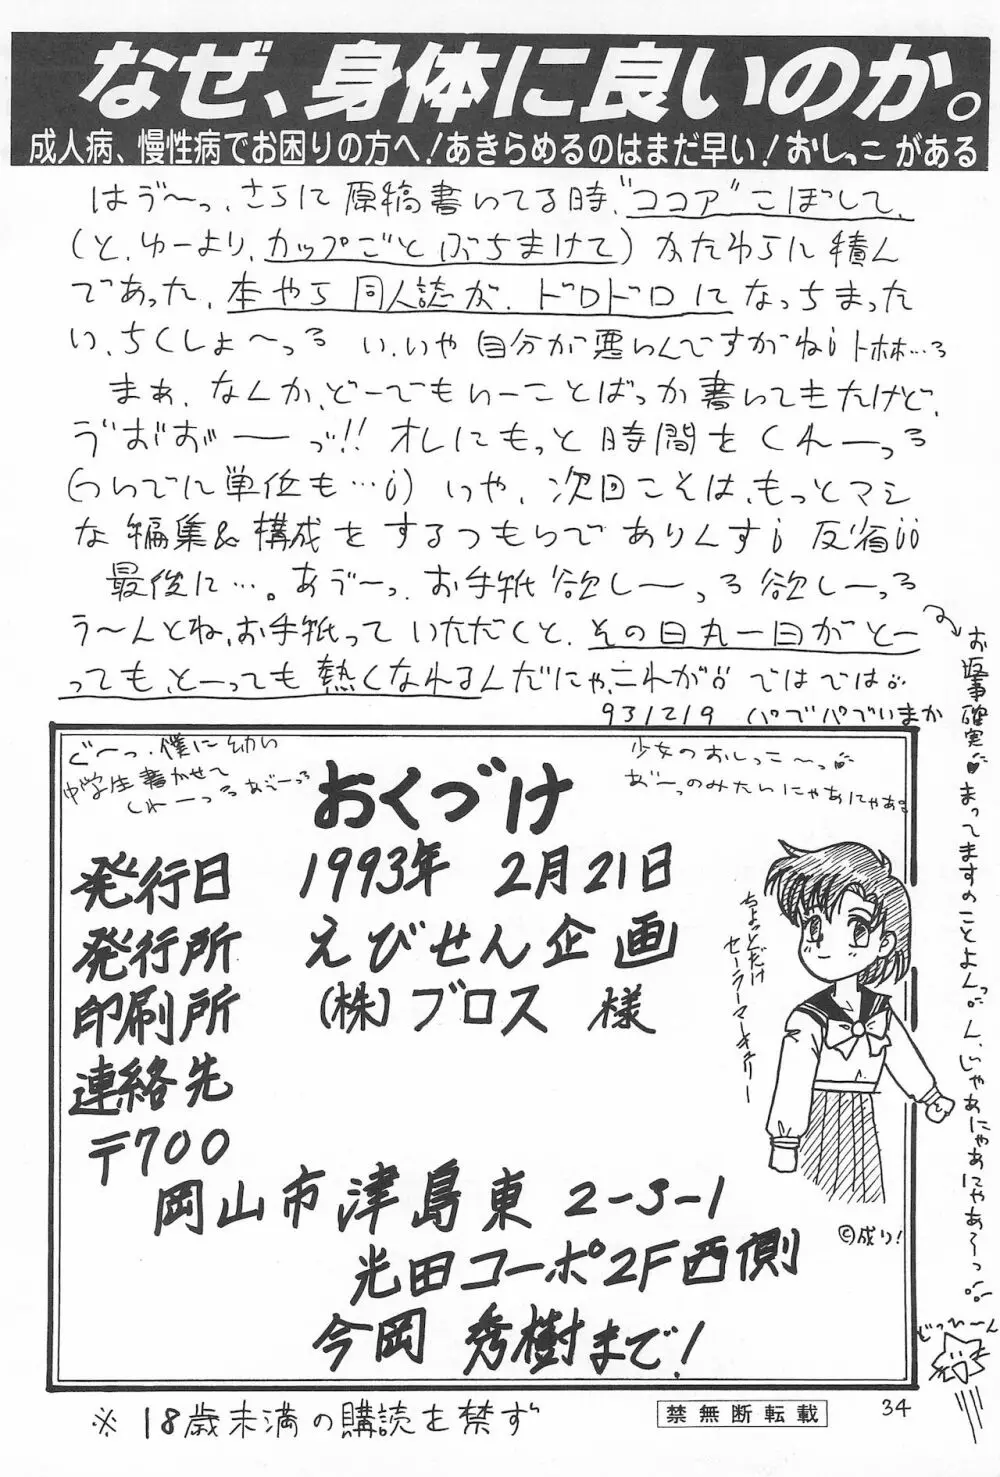 なぜ、身体に良いのか。
成人病、慢性病でお困りの方へ!あきらめるのはまだ早い!おしっこがある
はう゛〜っ、さらに原稿書いてる時、"ココア"こぼして、
(と、ゆーより、カップごとぶちまけて)かたわらに積ん
であった、本やら同人誌が、ドロドロになっちまった
い、ちくしょ〜っろ い、いや自分が悪いんですがねi トホホ…ろ
まぁ、なんか、どーでもいーことばっか書いてきたけど、
う゛お゛お゛ーっ゛!!オレにもっと時間をくれーっろ
(ついでに単位も…i) いや、次回こそは、もっとマシ
な編集&構成をするつもりでありんすi 反省ii
最後に…。あ゛〜っ、お手紙欲しーっろ欲しーっろ
う〜んとね、お手紙っていただくと、その日丸一日がとー
っても、とーっても熱くなれるんだにゃ、これが。ではでは。
931219 パでパでいまか
お返事確実 まってますのことよんっ ん、じゃあにゃあにゃあ〜っ
どっひーん
おくづけ
発行日 1993年 2月21日
発行所 えびせん企画
印刷所 (株)ブロス 様
連絡先
〒700
岡山市津島東 2-3-1
光田コーポ2F西側
今岡 秀樹まで!
ちょっとだけ
セーラーマーキュリー
©成り!
※18歳未満の購読を禁ず
禁無断転載
34